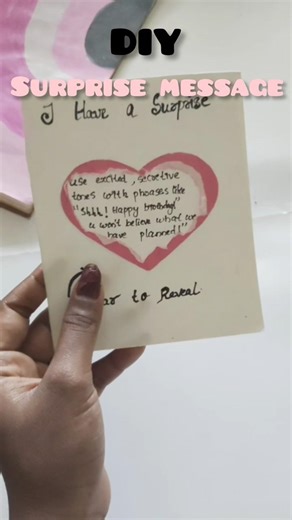 DIY
SURPRISE MESSAGE
I Have a Surprise
use excited, secretive
tones with phrases like
"Shhh! Happy birthday!"
u won't believe what we
have planned!"
to Reveal